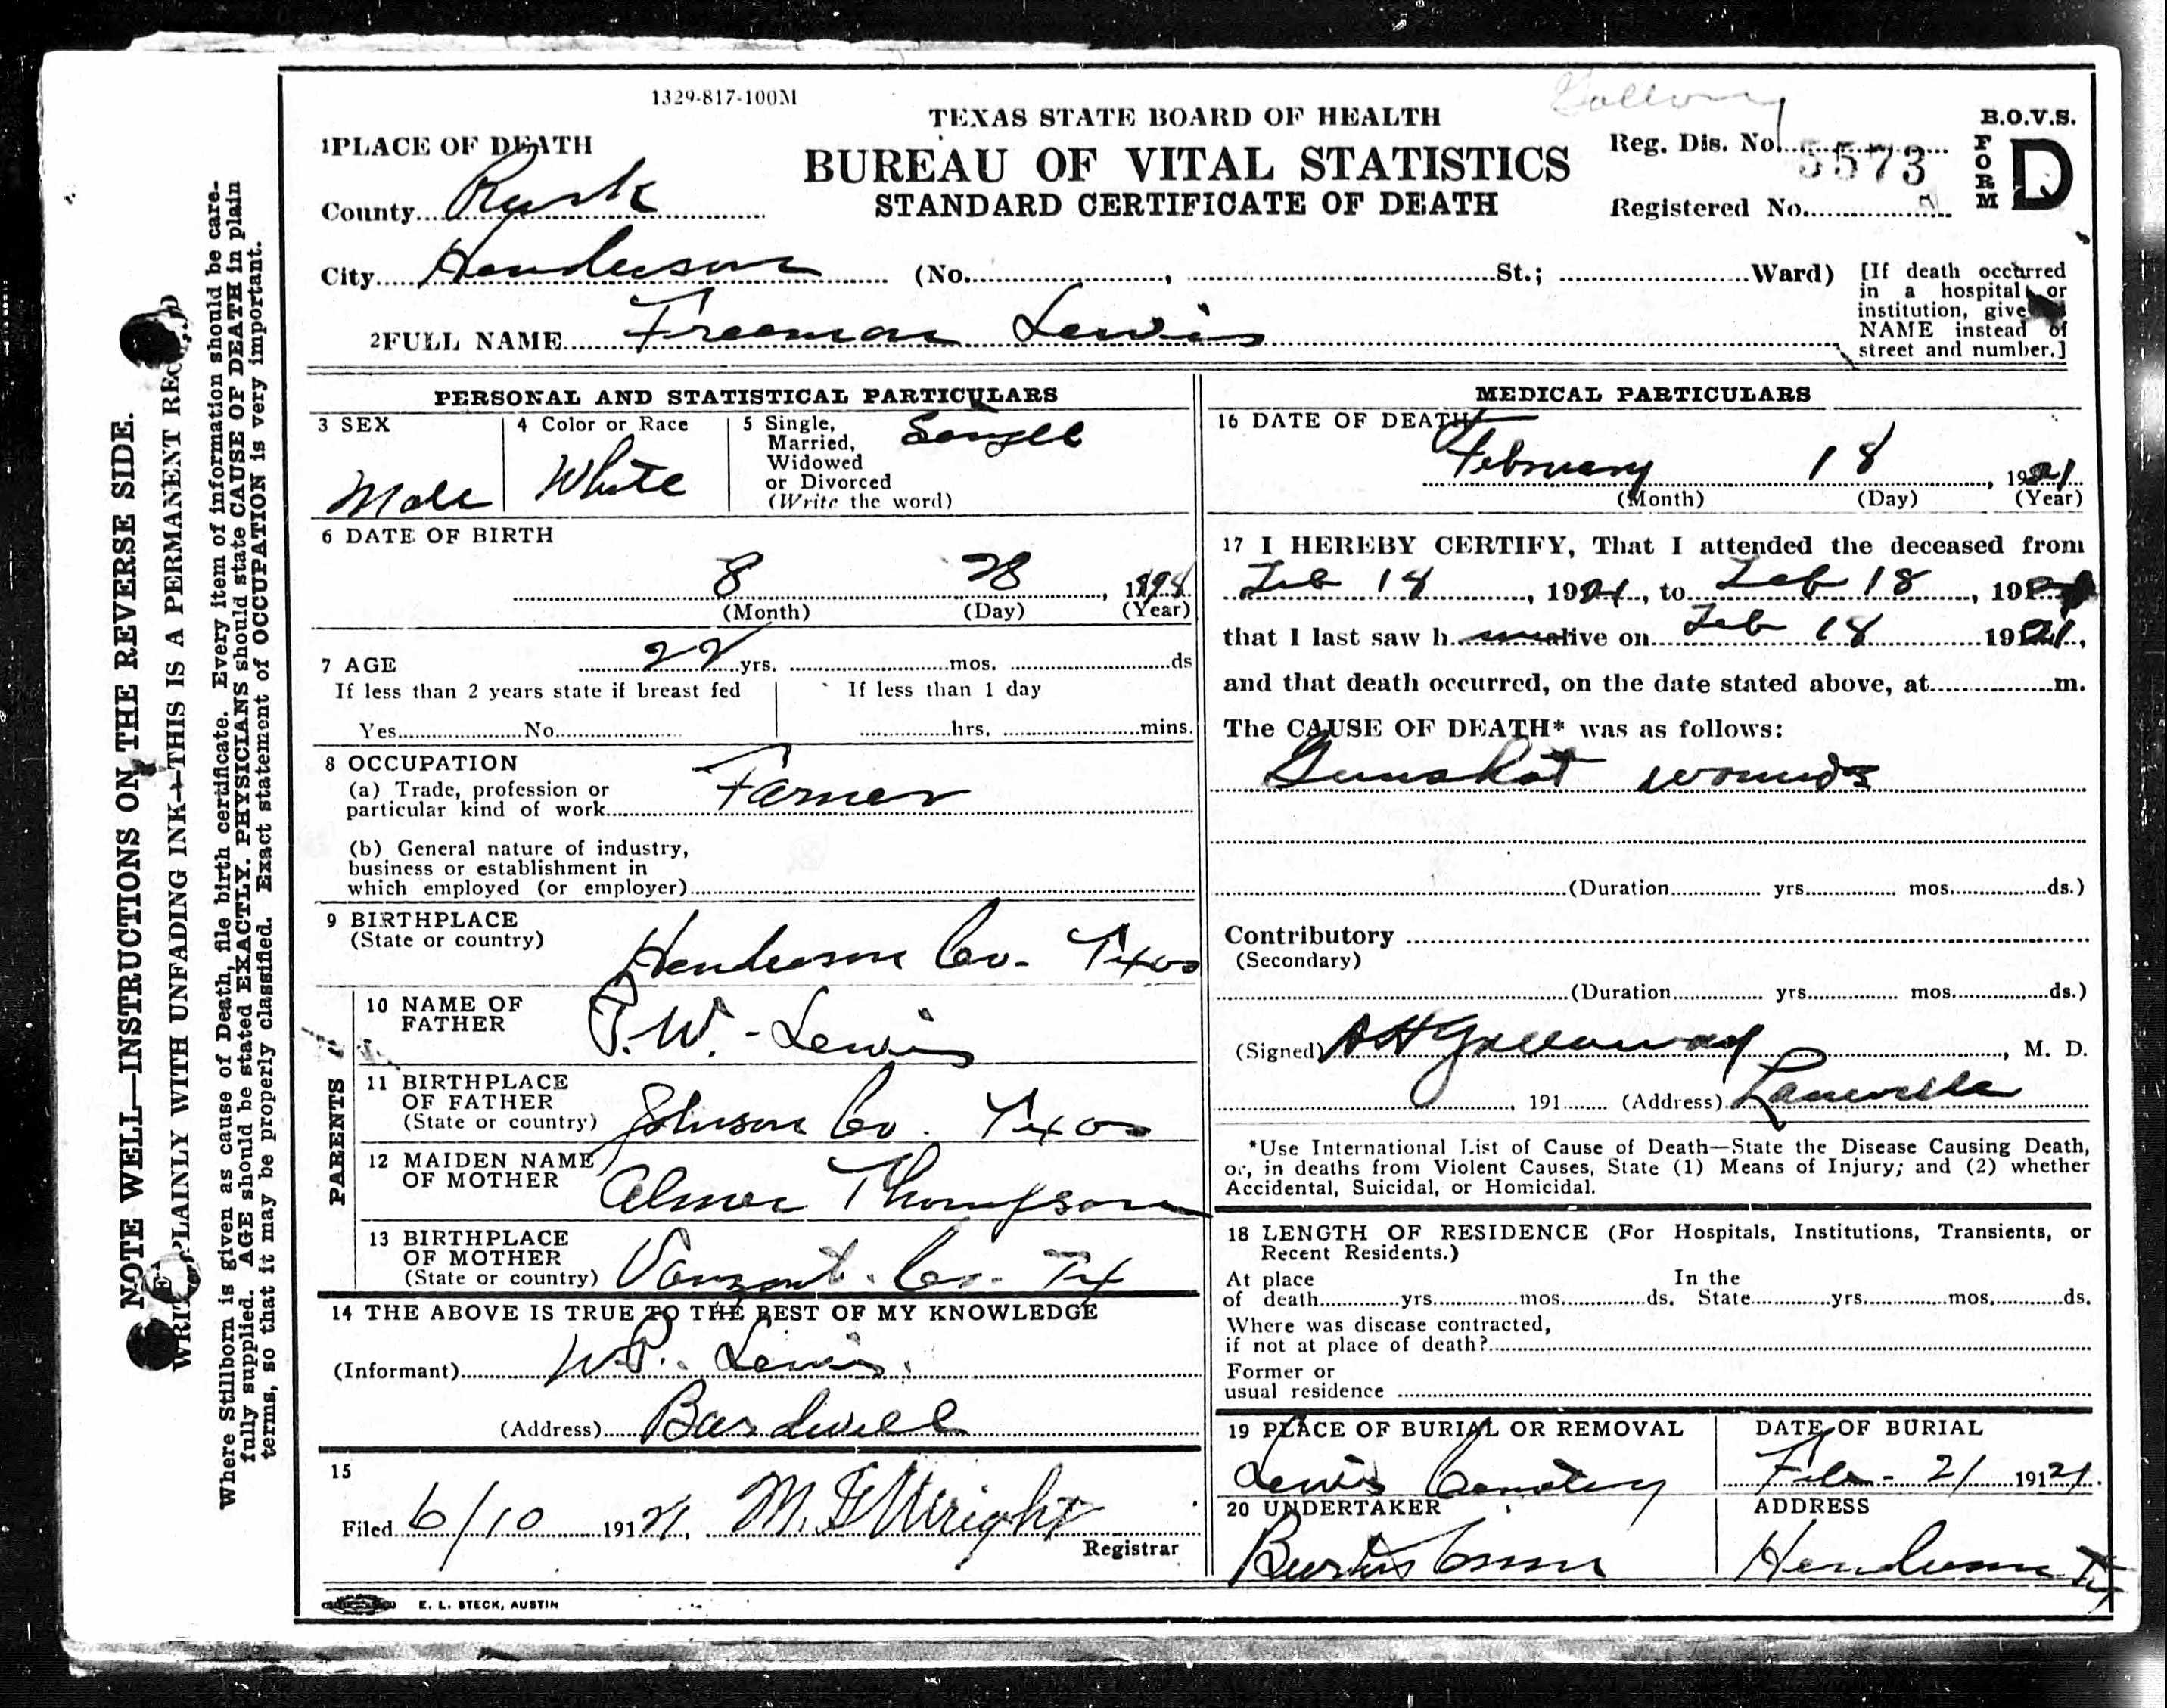 1329-817-100M
TEXAS STATE BOARD OF HEALTH
BUREAU OF VITAL STATISTICS
STANDARD CERTIFICATE OF DEATH
Reg. Dis. No. 5573
Registered No.
B.O.V.S.
FORM D
1 PLACE OF DEATH
County Rusk
City Henderson (No. , St.; Ward)
[If death occurred in a hospital or institution, give its NAME instead of street and number.]
2 FULL NAME Freeman Lewis
PERSONAL AND STATISTICAL PARTICULARS
3 SEX
Male
4 Color or Race
White
5 Single, Married, Widowed or Divorced (Write the word)
Single
6 DATE OF BIRTH
8 28, 1898
(Month) (Day) (Year)
7 AGE 22 yrs. mos. ds
If less than 2 years state if breast fed
Yes No
If less than 1 day
hrs. mins.
8 OCCUPATION
(a) Trade, profession or
particular kind of work Farmer
(b) General nature of industry,
business or establishment in
which employed (or employer)
9 BIRTHPLACE
(State or country) Henderson Co. Texas
PARENTS
10 NAME OF
FATHER
W. Lewis
11 BIRTHPLACE
OF FATHER
(State or country) Johnson Co. Texas
12 MAIDEN NAME
OF MOTHER
Thompson
13 BIRTHPLACE
OF MOTHER
(State or country) Vanzant. Co. Tex
14 THE ABOVE IS TRUE TO THE BEST OF MY KNOWLEDGE
(Informant) W.P. Lewis
(Address) Bardwell
15
Filed 6/10 1921, M. Wright
Registrar
E. L. STECK, AUSTIN
MEDICAL PARTICULARS
16 DATE OF DEATH
February 18, 1921
(Month) (Day) (Year)
17 I HEREBY CERTIFY, That I attended the deceased from
Feb 18, 1921, to Feb 18, 1921
that I last saw h alive on Feb 18 1921,
and that death occurred, on the date stated above, at m.
The CAUSE OF DEATH* was as follows:
Gunshot wounds
(Duration yrs. mos. ds.)
Contributory
(Secondary)
(Duration yrs. mos. ds.)
(Signed) A H Galloway, M. D.
, 191 (Address) Laneville
*Use International List of Cause of Death—State the Disease Causing Death,
or, in deaths from Violent Causes, State (1) Means of Injury; and (2) whether
Accidental, Suicidal, or Homicidal.
18 LENGTH OF RESIDENCE (For Hospitals, Institutions, Transients, or
Recent Residents.)
At place In the
of death yrs. mos. ds. State yrs. mos. ds.
Where was disease contracted,
if not at place of death?
Former or
usual residence
19 PLACE OF BURIAL OR REMOVAL
Lewis Cemetery
DATE OF BURIAL
Feb - 21 1921.
20 UNDERTAKER
ADDRESS
Henderson Tx
NOTE WELL—INSTRUCTIONS ON THE REVERSE SIDE.
WRITE PLAINLY WITH UNFADING INK—THIS IS A PERMANENT RECORD
Where Stillborn is given as cause of Death, file birth certificate. Every item of information should be care-
fully supplied. AGE should be stated EXACTLY. PHYSICIANS should state CAUSE OF DEATH in plain
terms, so that it may be properly classified. Exact statement of OCCUPATION is very important.